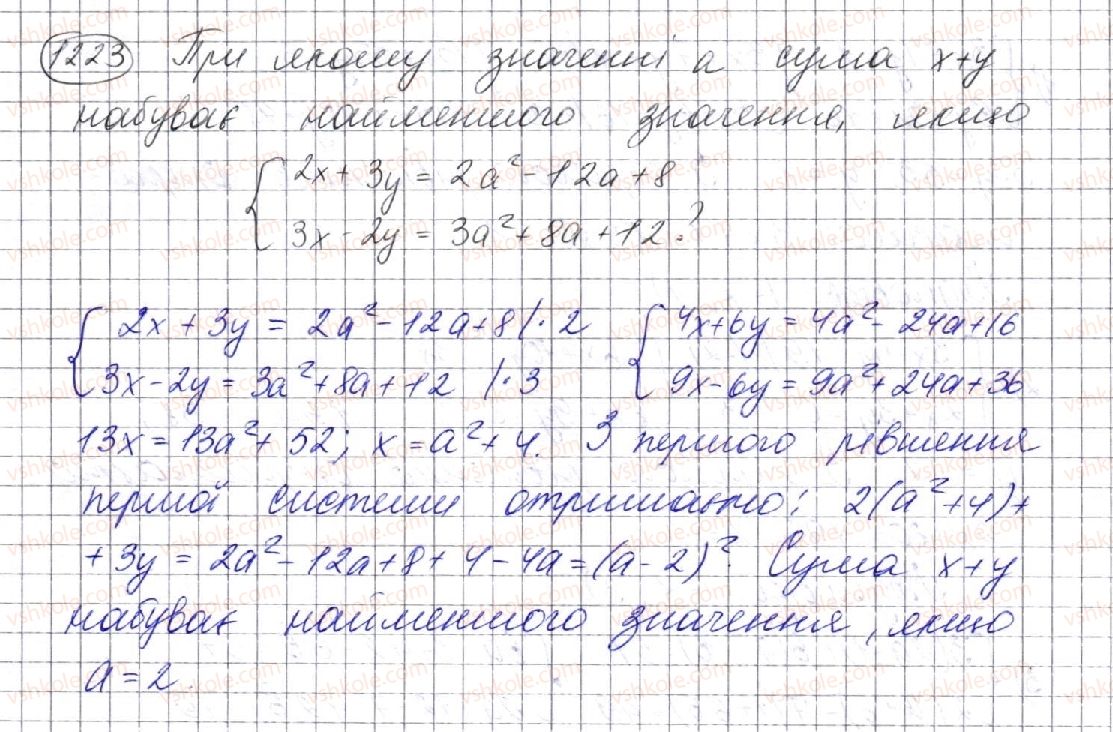 1223 При якому значенні a сума x+y
набуває найменшого значення, якщо
{ 2x + 3y = 2a² - 12a + 8
3x - 2y = 3a² + 8a + 12 ?
{ 2x + 3y = 2a² - 12a + 8 /· 2 { 4x + 6y = 4a² - 24a + 16
3x - 2y = 3a² + 8a + 12 /· 3 9x - 6y = 9a² + 24a + 36
13x = 13a² + 52; x = a² + 4. З першого рівняння
першої системи отримаємо: 2(a² + 4) +
+ 3y = 2a² - 12a + 8 + 4 - 4a = (a - 2)². Сума x+y
набуває найменшого значення, якщо
a = 2.